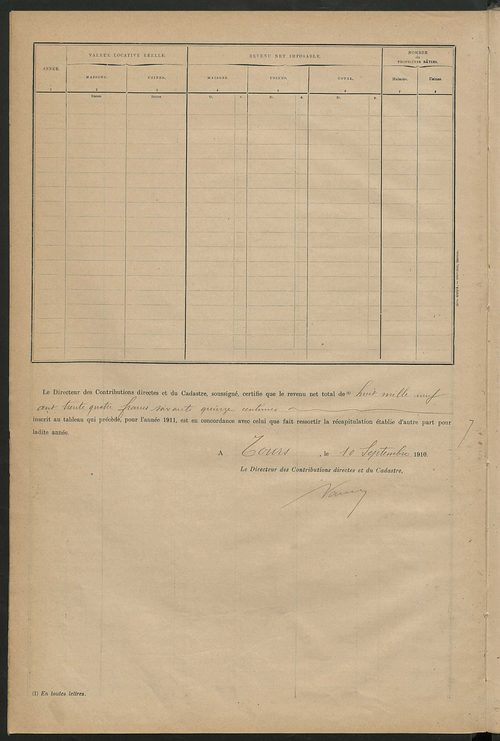 ANNÉE.
VALEUR LOCATIVE RÉELLE.
REVENU NET IMPOSABLE.
NOMBRE
de
PROPRIÉTÉS BÂTIES.
MAISONS.
USINES.
MAISONS.
USINES.
TOTAL.
Maisons.
Usines.
1
2
3
4
5
6
7
8
francs
francs
fr. c.
fr. c.
fr. c.
Le Directeur des Contributions directes et du Cadastre, soussigné, certifie que le revenu net total de (1) huit mille neuf
cent trente quatre francs soixante quinze centimes
inscrit au tableau qui précède, pour l'année 1911, est en concordance avec celui que fait ressortir la récapitulation établie d'autre part pour
ladite année.
A Tours, le 10 Septembre 1910.
Le Directeur des Contributions directes et du Cadastre,
(1) En toutes lettres.